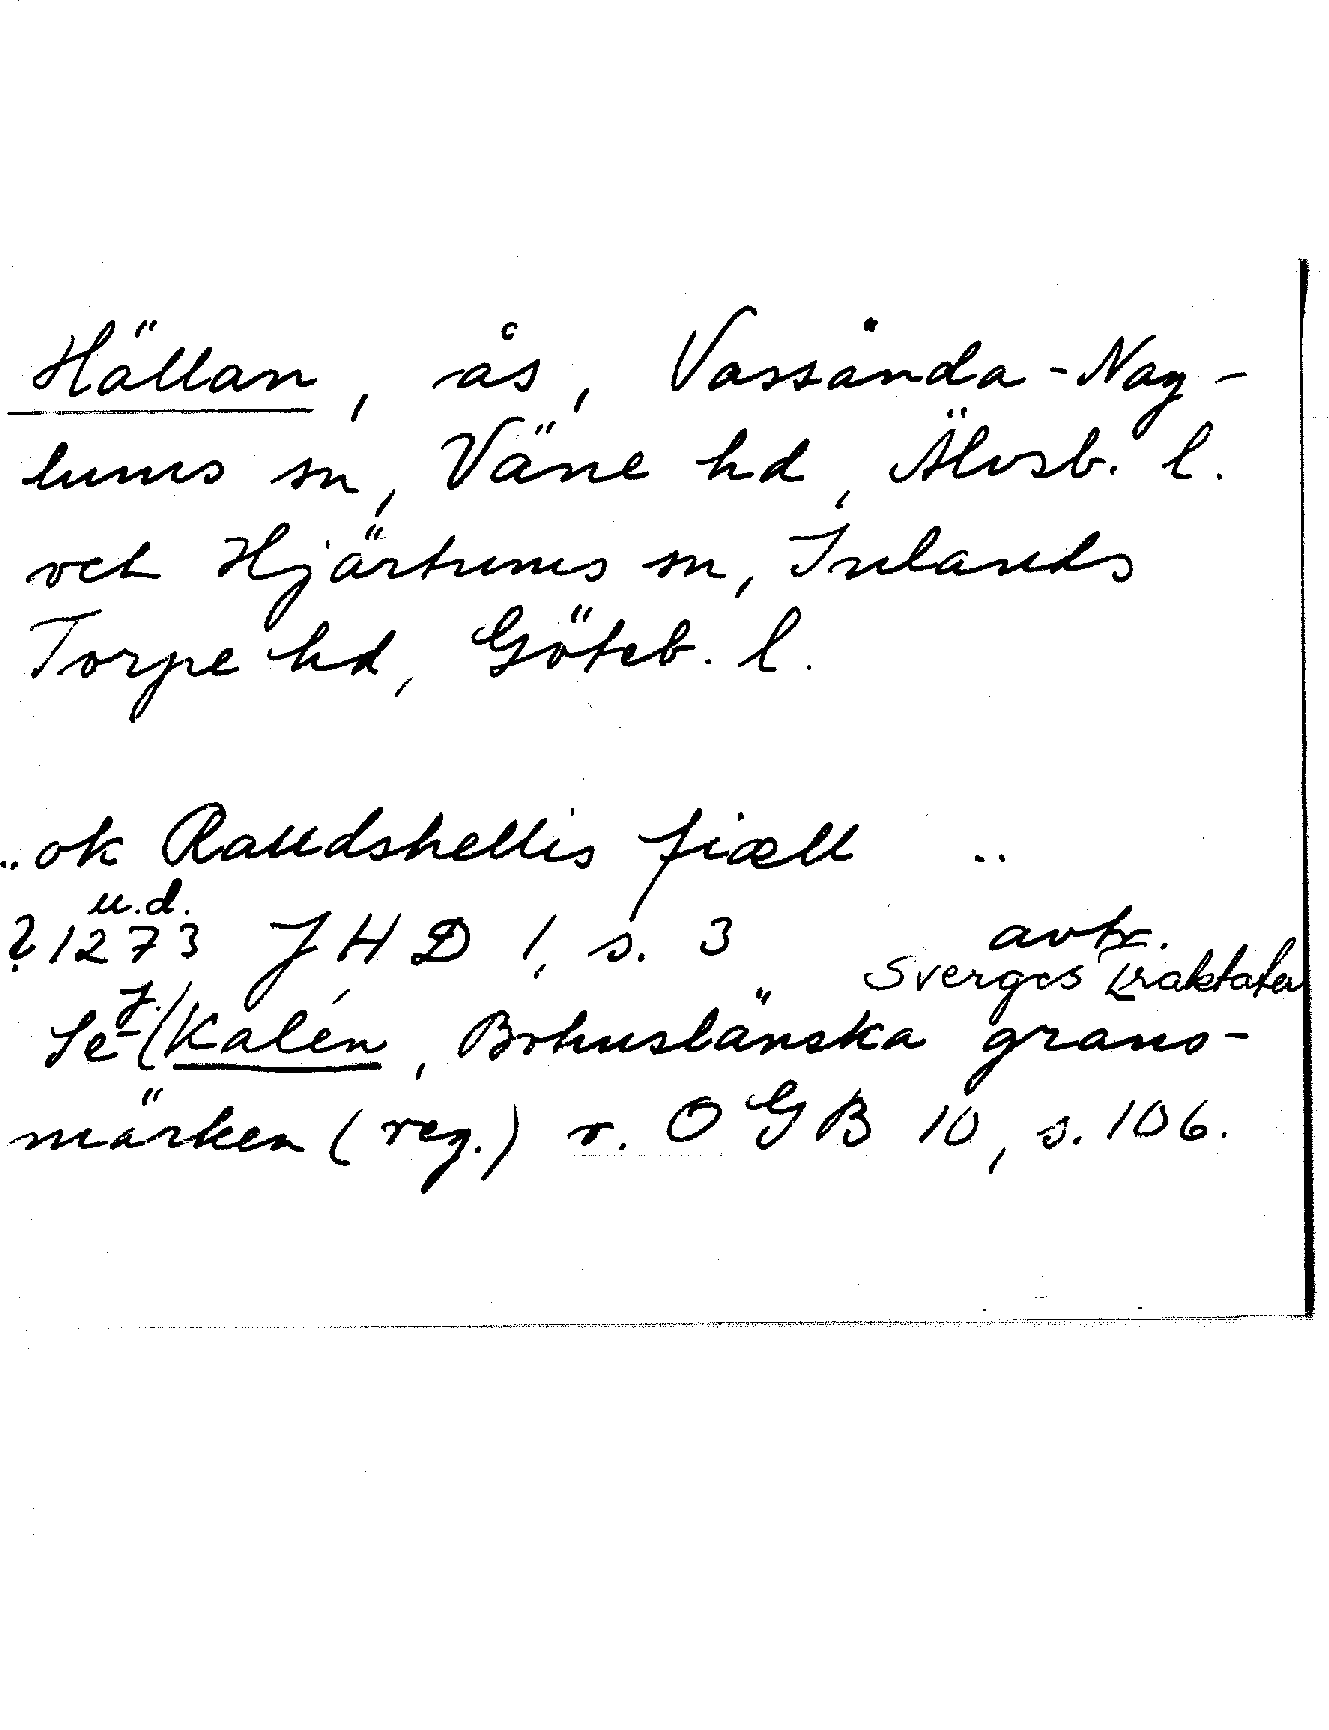 Hällan, ås, Vassända-Nag-
lums sn, Väne hd, Älvsb. l.
och Hjärtums sn, Inlands
Torpe hd, Göteb. l.
..ok Raudshellis fiæll ..
u.d.
?1273 JHD 1, s. 3 avtr.
Sverges traktater
Se J. Kalén, Bohuslänska gräns-
märken (reg.) o. OGB 10, s. 106.